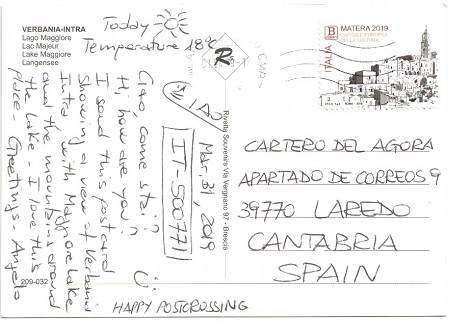 VERBANIA-INTRA
Lago Maggiore
Lac Majeur
Lake Maggiore
Langensee
Today
Temperature 18°C
Ciao, come stai?
Hi, how are you?
I send this postcard
showing a view of Verbania
Intra with Maggiore Lake
and the mountains around
the lake - I love this
place - Greetings - Angelo
CIAO
Mar. 31, 2019
IT-500771
HAPPY POSTCROSSING
209-032
R
Rivetta Souvenirs Via Vergnano 97 - Brescia
B
MATERA 2019
CAPITALE EUROPEA
DELLA CULTURA
ITALIA
CARTERO DEL AGORA
APARTADO DE CORREOS 9
39770 LAREDO
CANTABRIA
SPAIN